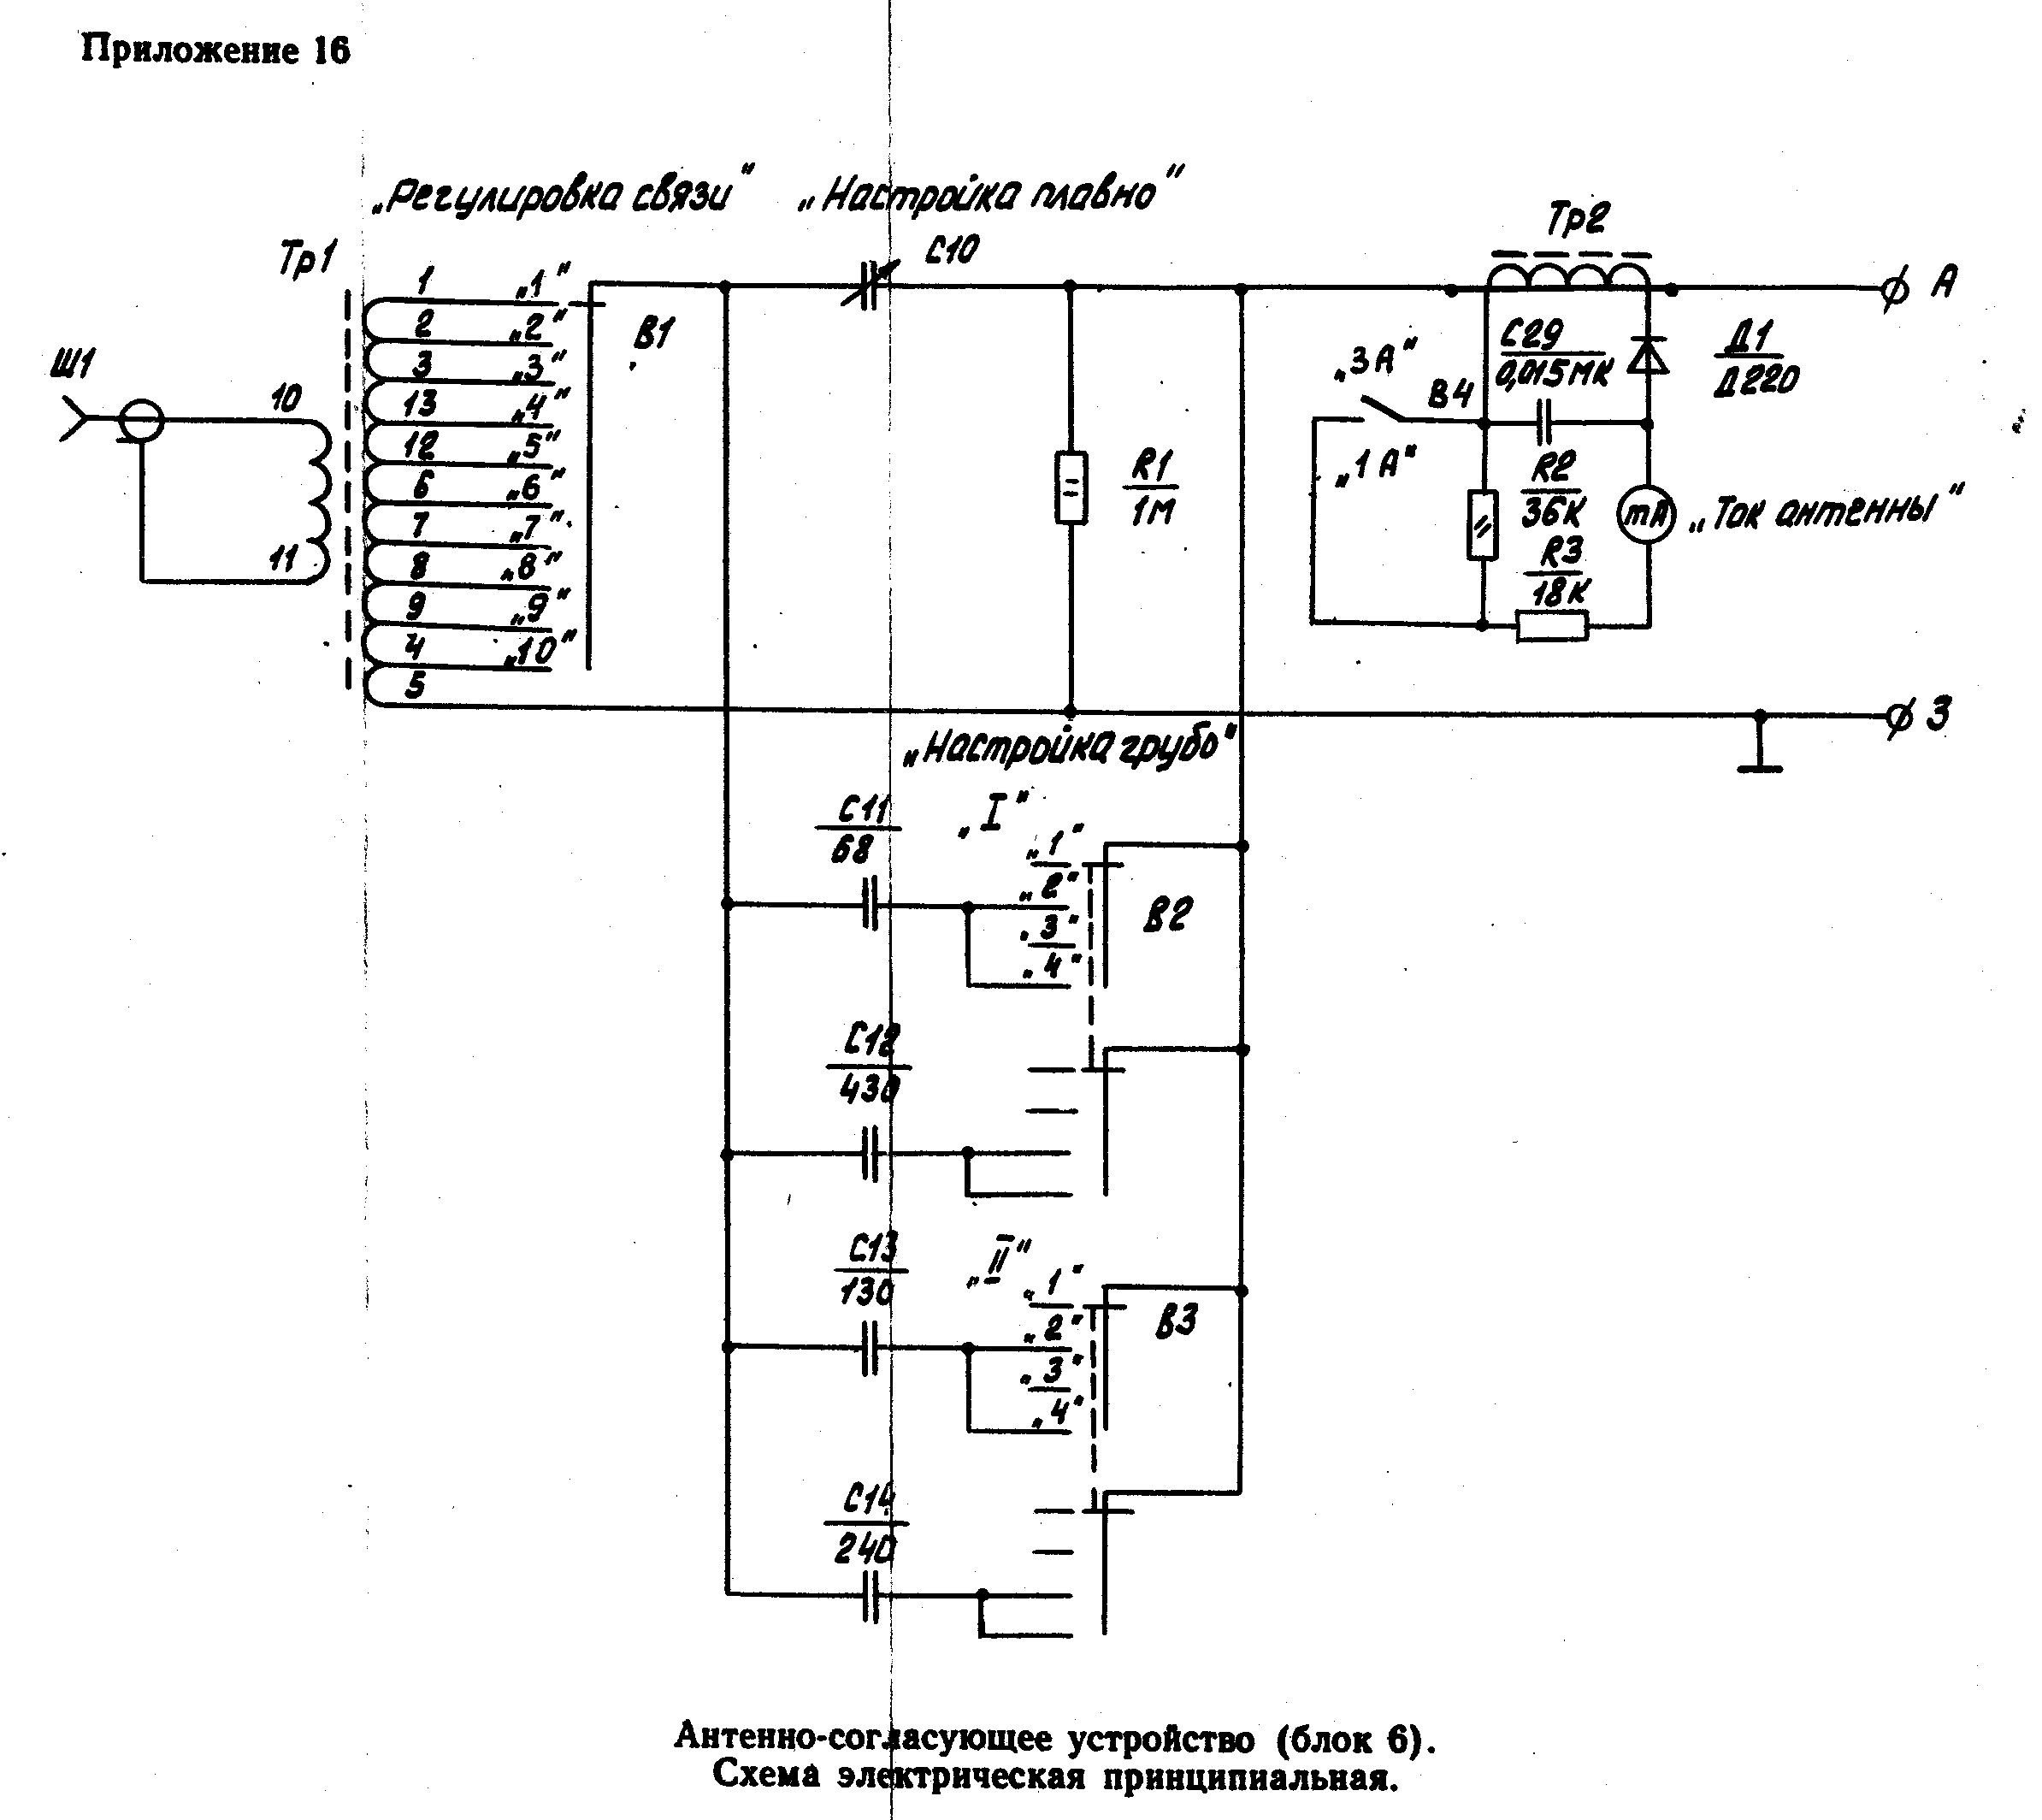 Приложение 16
„Регулировка связи"
„Настройка плавно"
Тр1
С10
Тр2
А
Ш1
10
11
1 „1"
2 „2"
3 „3"
13 „4"
12 „5"
6 „6"
7 „7"
8 „8"
9 „9"
4 „10"
5
В1
R1
1М
„3А"
В4
„1А"
С29
0,015МК
Д1
Д220
R2
36К
R3
18К
mA
„Ток антенны"
З
„Настройка грубо"
С11
68
„I"
„1"
„2"
„3"
„4"
В2
С12
430
С13
130
„II"
„1"
„2"
„3"
„4"
В3
С14
240
Антенно-согласующее устройство (блок 6).
Схема электрическая принципиальная.